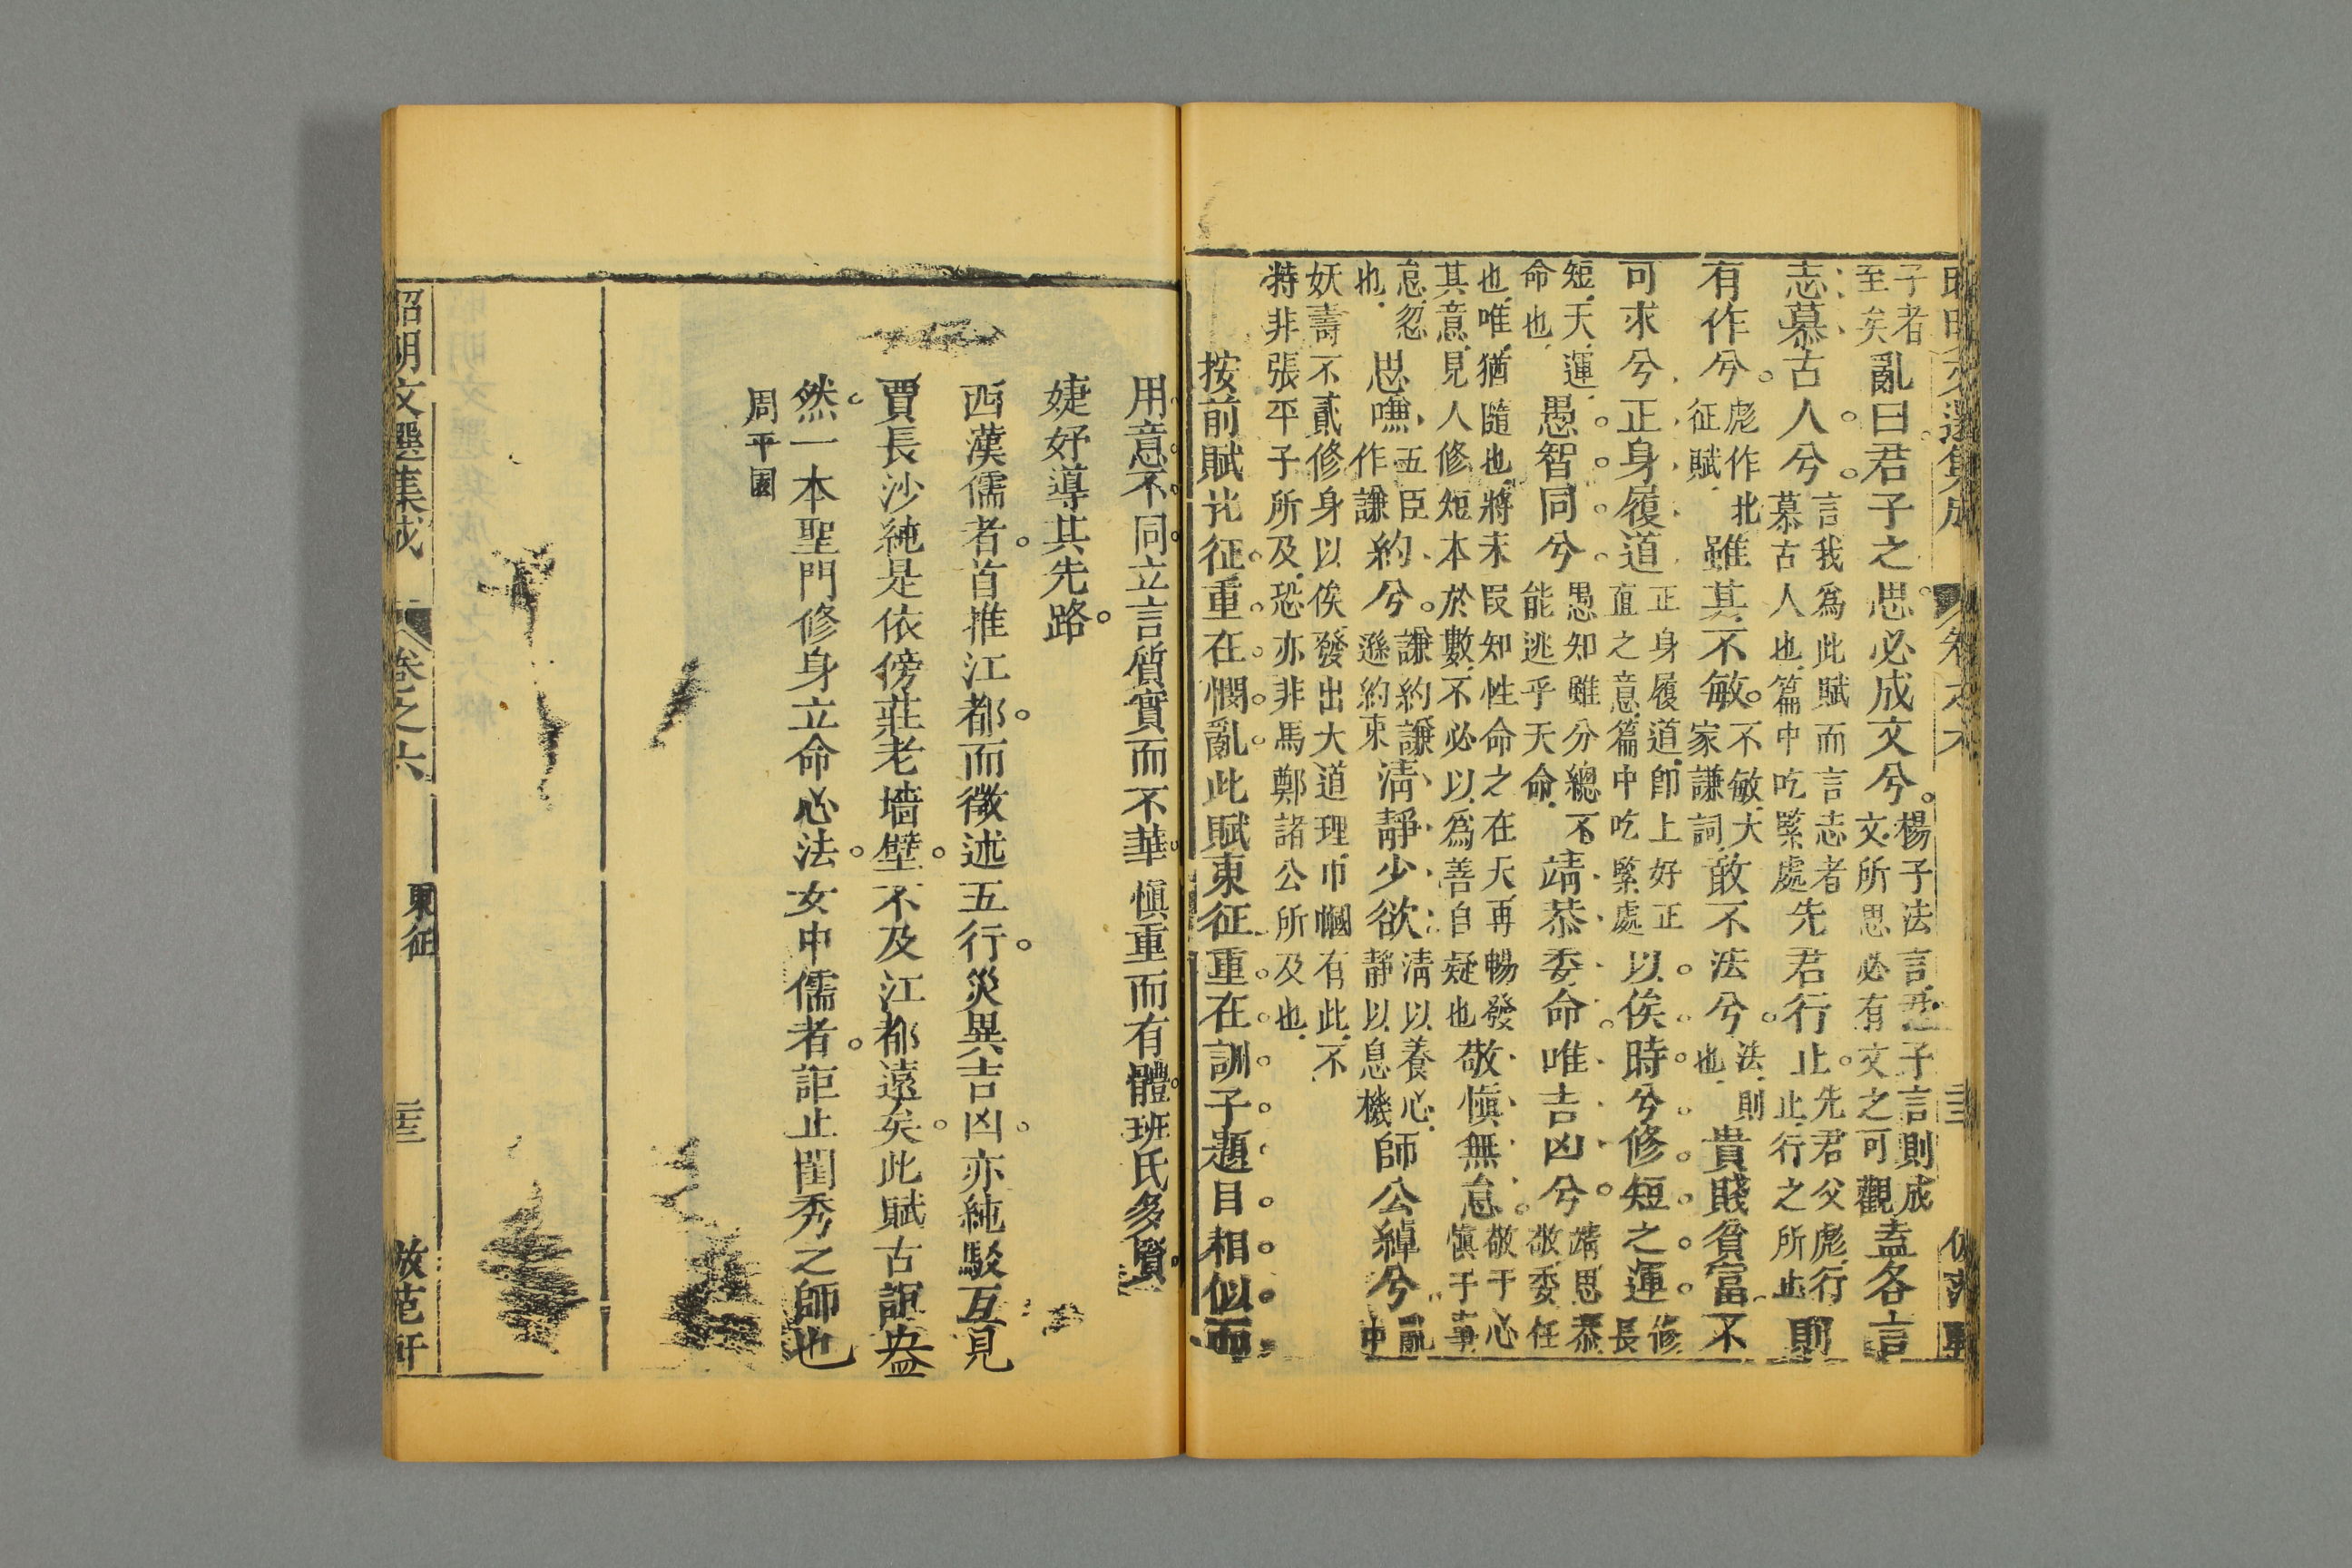 昭明文選集成 卷之六
子者
至矣
亂曰君子之思必成文兮
楊子法言孟子言則成
文所思必有文之可觀
盍各言
志慕古人兮
言我爲此賦而言志者
慕古人也篇中吃緊處
先君行止
先君父彪行
止行之所止
則
有作兮
彪作北
征賦
雖其不敏
不敏大
家謙詞
敢不法兮
法則
也
貴賤貧富不
可求兮正身履道
正身履道即上好正
直之意篇中吃緊處
以俟時兮修短之運
修
長
短夭運
命也
愚智同兮
愚知雖分總不
能逃乎天命
靖恭委命唯吉凶兮
靖思恭
敬委任
也唯猶隨也將末段知性命之在天再暢發
其意見人修短本於數不必以爲善自疑也
敬愼無怠
敬于心
愼于事
怠忽
也
思嗛
五臣
作謙
約兮
謙約謙
遜約束
淸靜少欲
淸以養心
靜以息機
師公綽兮
亂
中
妖壽不貳修身以俟發出大道理巾幗有此不
特非張平子所及恐亦非馬鄭諸公所及也
按前賦北征重在憫亂此賦東征重在訓子題目相似而
用意不同立言質實而不華愼重而有體班氏多賢
婕妤導其先路
西漢儒者首推江都而徵述五行災異吉凶亦純駁互見
賈長沙純是依傍莊老墻壁不及江都遠矣此賦古誼盎
然一本聖門修身立命心法女中儒者詎止閨秀之師也
周平園
昭明文選集成 卷之六 東征 倣范軒